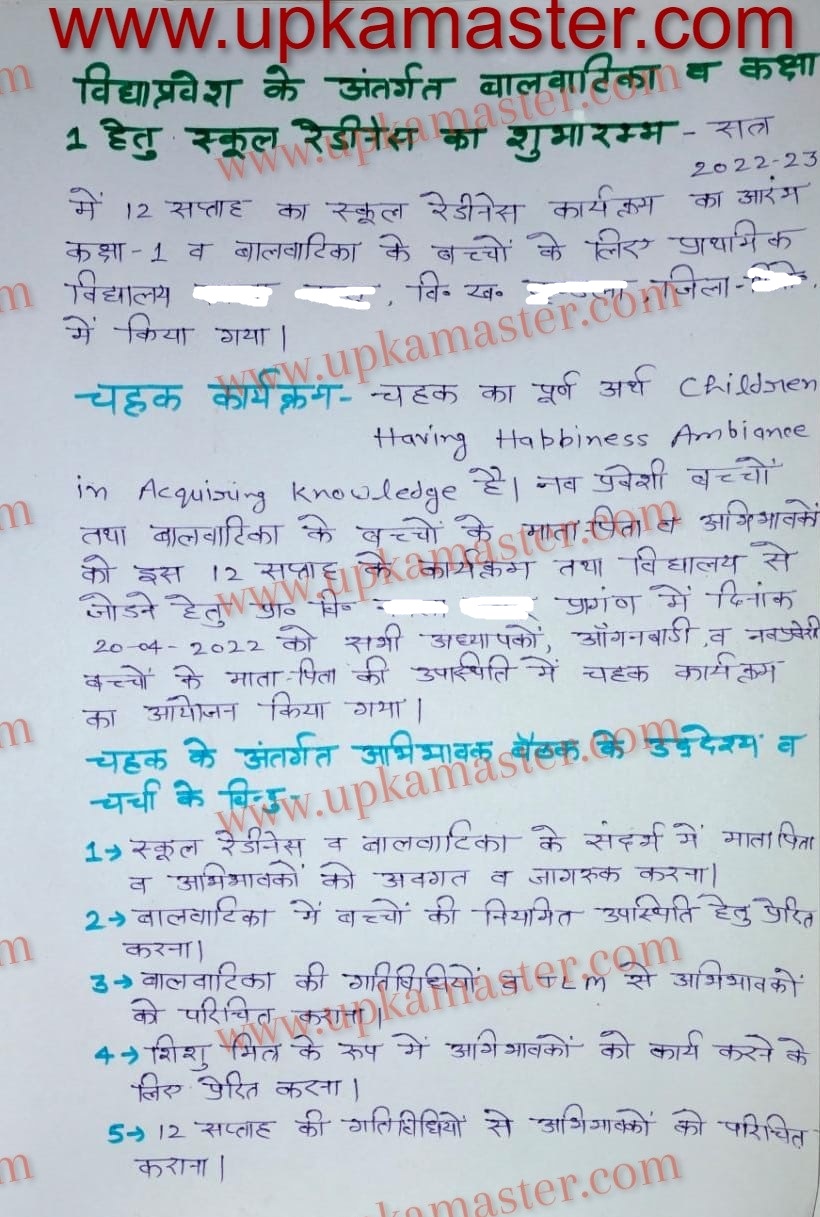 www.upkamaster.com
विद्याप्रवेश के अंतर्गत बालवाटिका व कक्षा
1 हेतु स्कूल रेडीनेस का शुभारम्भ - सत्र
2022-23
में 12 सप्ताह का स्कूल रेडीनेस कार्यक्रम का आरंभ
कक्षा-1 व बालवाटिका के बच्चों के लिए प्राथमिक
विद्यालय , वि० ख० , जिला-
में किया गया।
चहक कार्यक्रम- चहक का पूर्ण अर्थ Children
Having Habbiness Ambiance
in Acquiring Knowledge है। नव प्रवेशी बच्चों
तथा बालवाटिका के बच्चों के माता पिता व अभिभावकों
को इस 12 सप्ताह के कार्यक्रम तथा विद्यालय से
जोडने हेतु प्रा० वि० प्रागंण में दिनांक
20-04-2022 को सभी अध्यापकों, आँगनबाडी, व नवप्रवेशी
बच्चों के माता-पिता की उपास्थिति में चहक कार्यक्रम
का आयोजन किया गया।
चहक के अंतर्गत अभिभावक बैठक के उद्देश्य व
चर्चा के बिन्दु-
1→ स्कूल रेडीनेस व बालवाटिका के संदर्भ में माता पिता
व अभिभावकों को अवगत व जागरुक करना।
2→ बालवाटिका में बच्चों की नियमित उपास्थिति हेतु प्रेरित
करना।
3→ बालवाटिका की गतिबिधियों व TLM से अभिभावकों
को परिचित कराना।
4→ शिशु मित्र के रूप में अभिभावकों को कार्य करने के
लिए प्रेरित करना।
5→ 12 सप्ताह की गतिबिधियों से अभिभावकों को परिचित
कराना।